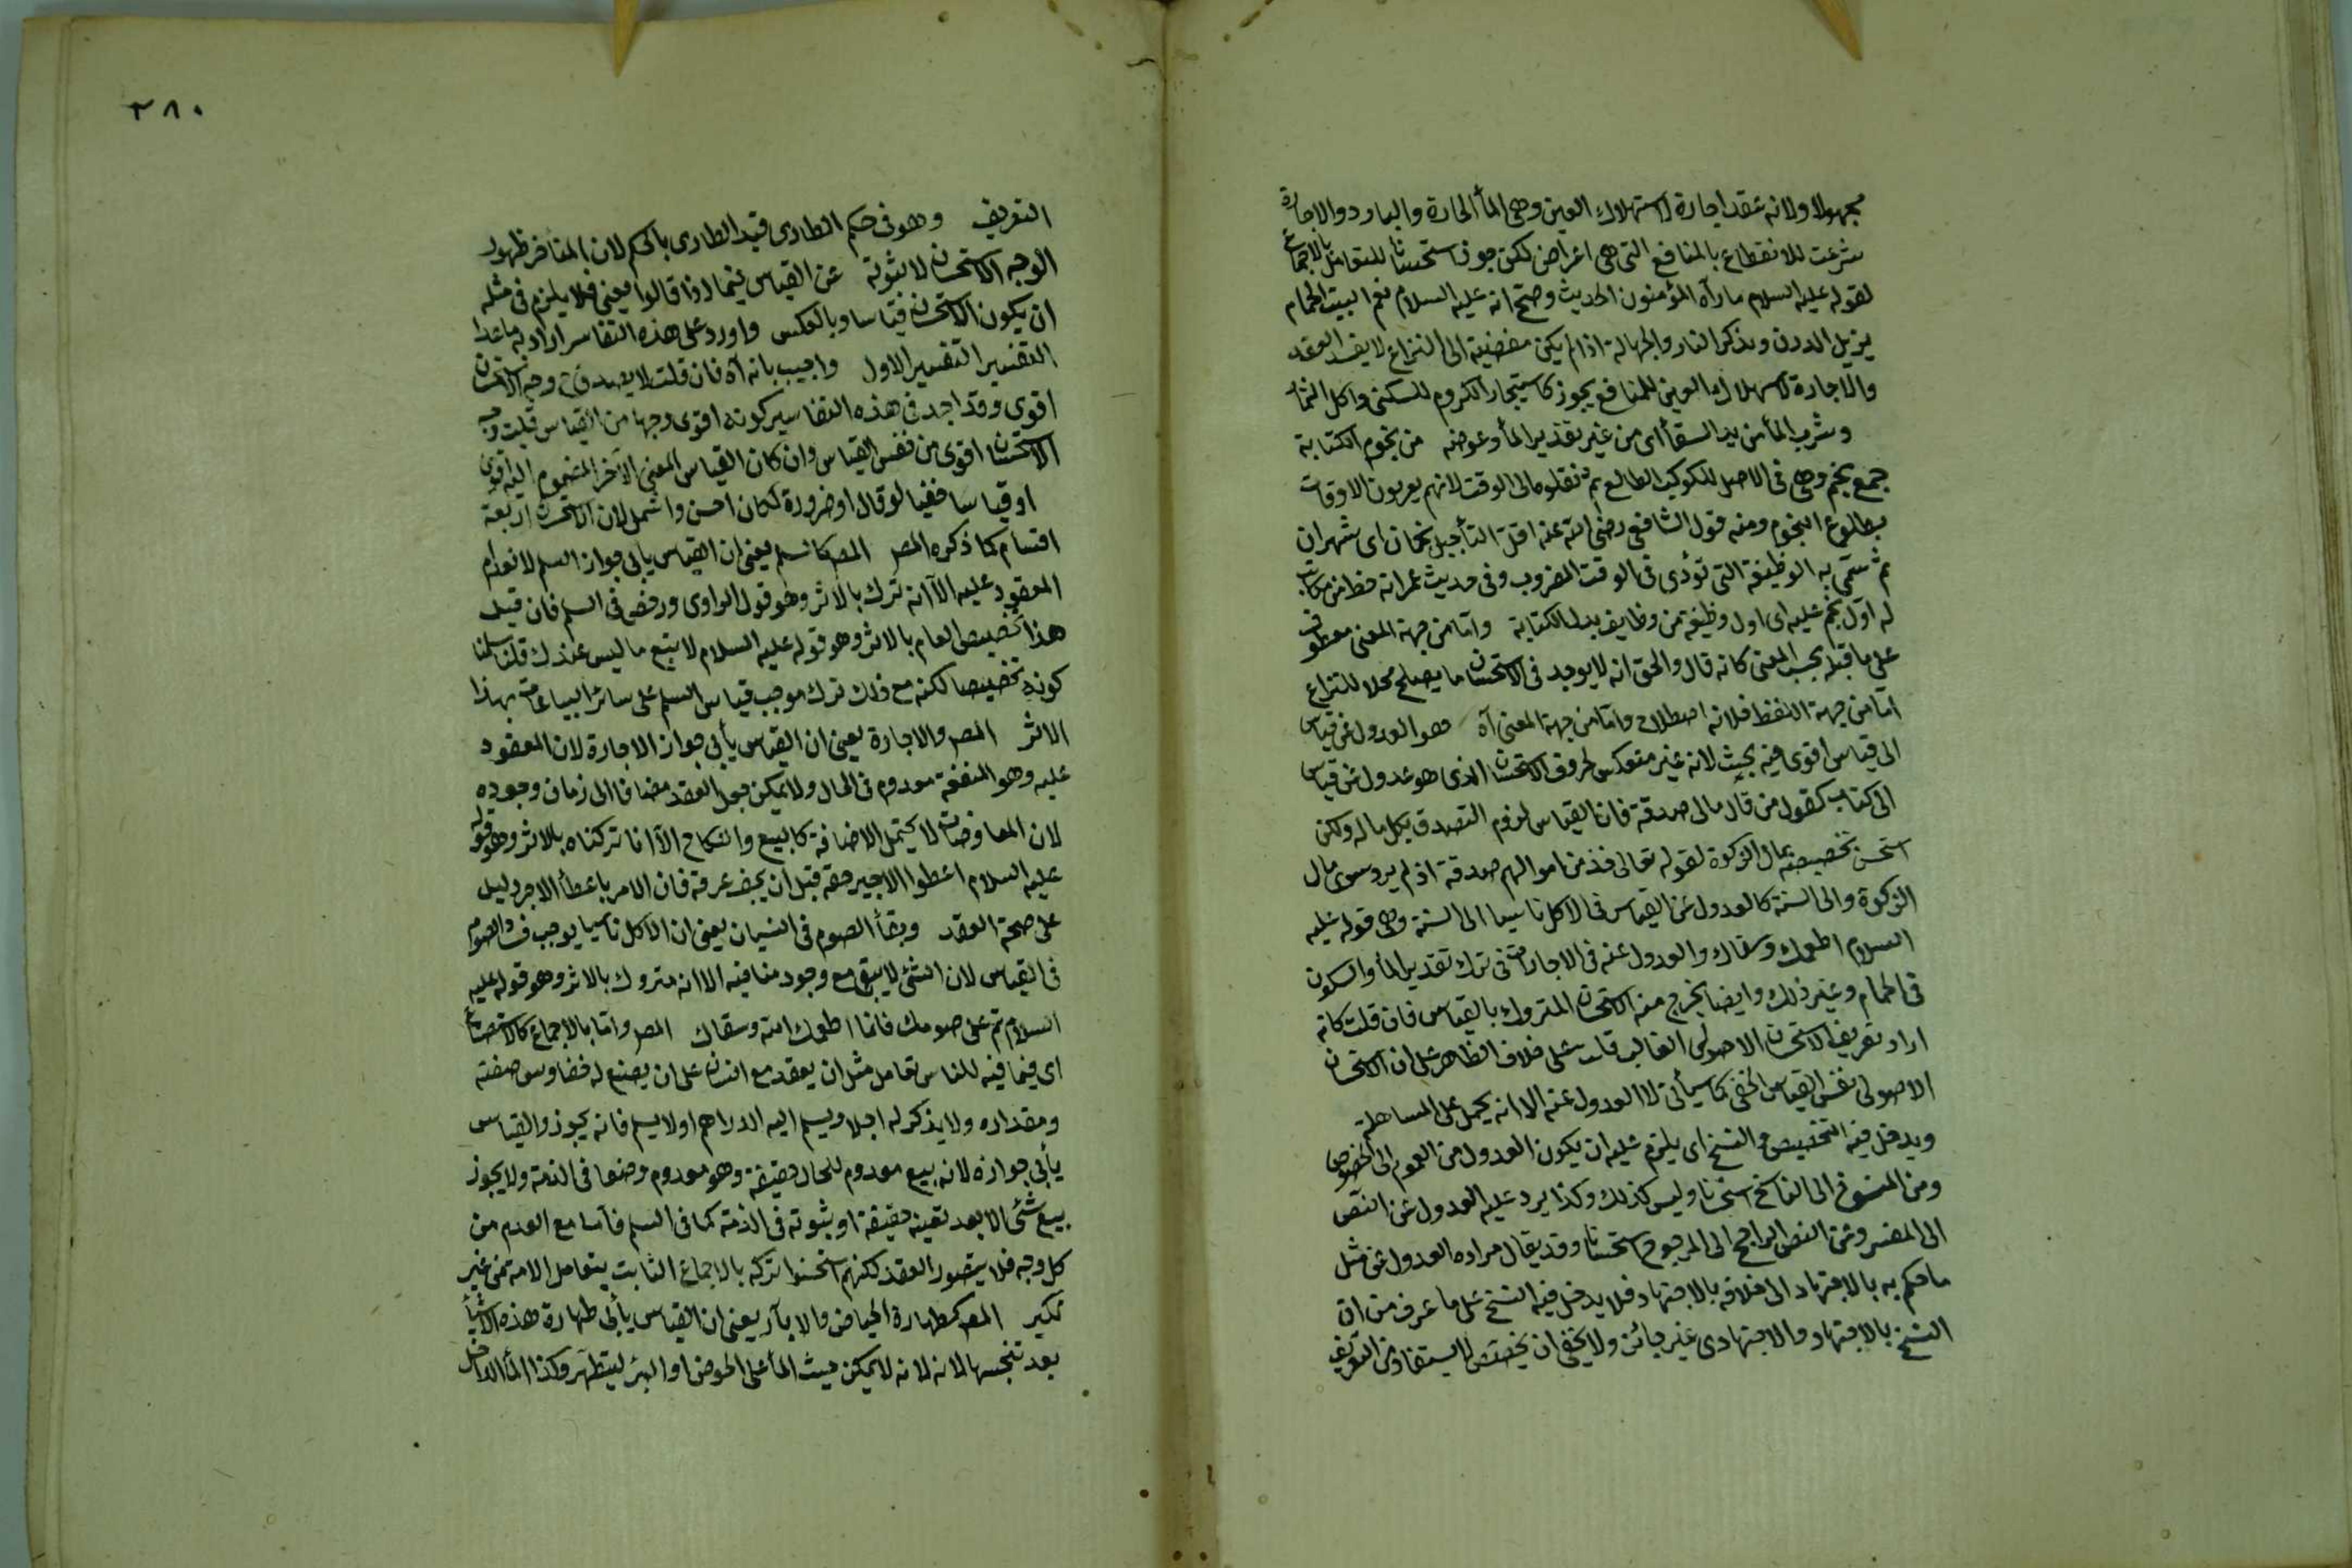 مجهولا ولانه عقد اجارة لاستهلاك العين وهى المأ الحارة والبارد والاجارة
شرعت للانقطاع بالمنافع التى هى اعراض لكن جوز استحسانا للتعامل بالاجماع
لقوله عليه السلام ما رآه المؤمنون الحديث وصح انه عليه السلام نعم البيت الحمام
يزيل الدرن ويذكر النار والجهالة اذا لم يكن مفضية الى النزاع لا يفسد العقد
والاجارة لاستهلاك العين للمنافع يجوز كاستيجار الكروم للسكنى واكل الثمار
وشرب المأ من يد السقأ اى من غير تقدير المأ وعوضه من نجوم الكتابة
جمع نجم وهى فى الاصل للكوكب الطالع ثم نقلوها الى الوقت لانهم يعرفون الاوقات
بطلوع النجوم ومنه قول الشافعى رضى الله عنه اقل التأجيل نجمان اى شهران
ثم سمى به الوظيفة التى تؤدى فى الوقت المضروب وفى حديث عمر انه حط من مكاتب
له اول نجم عليه اى اول وظيفة من وظايف بدل الكتابة واما من جهة المعنى معطوف
على ما قبله بحسب المعنى كانه قال والحق انه لا يوجد فى الاستحسان ما يصلح محلا للنزاع
اما من جهة اللفظ فلانه اصطلاح واما من جهة المعنى آه وهو العدول عن قياس
الى قياس اقوى فيه بحث لانه غير منعكس لخروج الاستحسان الذى هو عدول عن قياس
الى كتاب كقول من قال مالى صدقة فان القياس لزوم التصدق بكل ماله ولكن
استحسن تخصيصه بمال الزكوة لقوله تعالى خذ من اموالهم صدقة اذ لم يرد سوى مال
الزكوة والى السنة كالعدول عن القياس فى الاكل ناسيا الى السنة وهى قوله عليه
السلام اطعمك وسقاك والعدول عنه فى الاجارة فى ترك تقدير المأ والسكون
فى الحمام وغير ذلك وايضا يخرج منه الاستحسان المتروك بالقياس فان قلت كانه
اراد تعريف الاستحسان الاصولى الغالب قلت على خلاف الظاهر على ان الاستحسان
الاصولى نفس القياس الخفى كما سيأتى لا العدول عنه الا انه يحمل على المساهلة
ويدخل فيه التخصيص والنسخ اى يلزم عليه ان يكون العدول من العموم الى الخصوص
ومن المنسوخ الى الناسخ استحسانا وليس كذلك وكذا يرد عليه العدول عن النص
الى المفسر وعن النص الراجح الى المرجوح استحسانا وقد يقال مراده العدول عن مثل
ما حكم به بالاجتهاد الى خلافه بالاجتهاد فلا يدخل فيه النسخ على ما عرف من ان
النسخ بالاجتهاد والاجتهادى غير جائز ولا يخفى ان يختص لا يستفاد من التعريف
٢٨٠
التعريف وهو فى حكم الطارى قيد الطارى بالحكم لان المتأخر ظهور
الوجه الاستحسان لا ثبوته عن القياس فيما اذا قالوا يعنى فلا يلزم فى مثله
ان يكون الاستحسان قياسا وبالعكس واورد على هذه التفاسر اراد به ما عدا
التفسير التفسير الاول واجيب بانه آه فان قلت لا يصدق ح وجه الاستحسان
اقوى وقد اخذ فى هذه التفاسير كونه اقوى وجها من القياس قلت وجه
الاستحسان اقوى من نفس القياس وان كان القياس المعنى الآخر المضموم اليه اقوى
او قياسا خفيا لو قال او ضرورة لكان احسن واشمل لان الاستحسان اربعة
اقسام كما ذكره المص المص كالسلم يعنى ان القياس يابى جواز السلم لانعدام
المعقود عليه الا انه ترك بالاثر وهو قول الراوى ورخص فى السلم فان قيل
هذا تخصيص العام بالاثر وهو قوله عليه السلام لا تبع ما ليس عندك قلنا سلمنا
كونه تخصيصا لكنه مع ذلك ترك موجب قياس السلم على سائر البياعات بهذا
الاثر المص والاجارة يعنى ان القياس يأبى جواز الاجارة لان المعقود
عليه وهو المنفعة معدوم فى الحال ولا يمكن جعل العقد مضافا الى زمان وجوده
لان المعاوضات لا يحتمل الاضافة كالبيع والنكاح الا انا تركناه بالاثر وهو قوله
عليه السلام اعطوا الاجير حقه قبل ان يجف عرقه فان الامر باعطأ الاجر دليل
على صحة العقد وبقأ الصوم فى النسيان يعنى ان الاكل ناسيا يوجب فساد الصوم
فى القياس لان الشئ لا يبقى مع وجود منافيه الا انه متروك بالاثر وهو قوله عليه
السلام تم على صومك فانما اطعمك الله وسقاك المص واما بالاجماع كالاستصناع
اى فيما فيه للناس تعامل مثل ان يعقد مع انسان على ان يصنع له خفا وبين صفته
ومقداره ولا يذكر له اجلا ويسلم اليه الدراهم اولا يسلم فانه يجوز والقياس
يأبى جوازه لانه بيع معدوم للحال حقيقة وهو معدوم وصفا فى الذمة ولا يجوز
بيع شئ الا بعد تعينه حقيقة او ثبوته فى الذمة كما فى السلم فاما مع العدم من
كل وجه فلا يتصور العقد لكنهم استحسنوا تركه بالاجماع الثابت بتعامل الامة من غير
نكير المص كطهارة الحياض والابآر يعنى ان القياس يأبى طهارة هذه الاشيأ
بعد تنجسها لانه لانه لا يمكن صب المأ على الحوض او البئر ليتطهر وكذا المأ الداخل